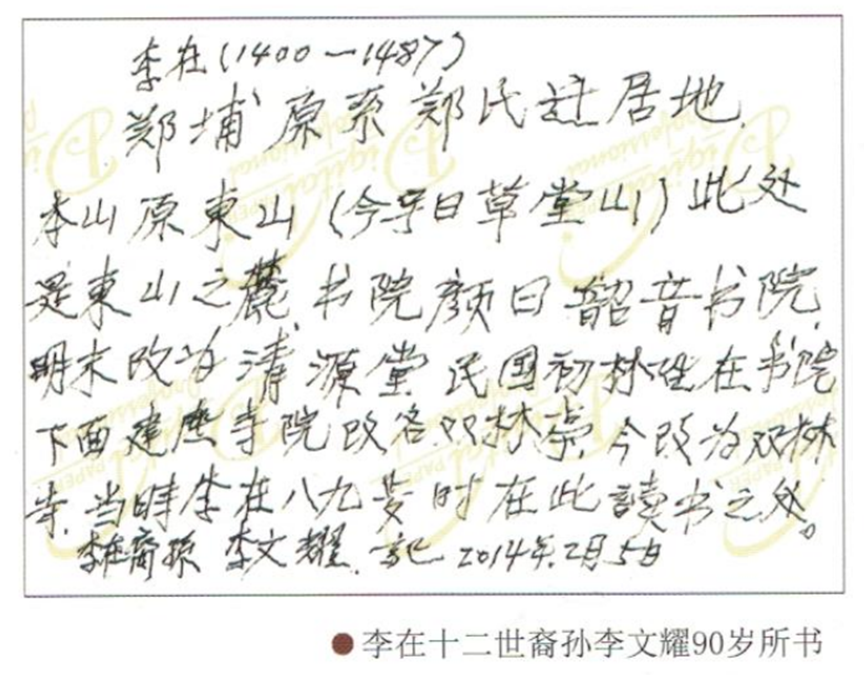 李在(1400—1487)
郑埔原系郑氏迁居地.
本山原東山(今字曰草堂山)此处
是東山之麓.书院颜曰韶音书院.
明末改为清源堂.民国初林姓在书院
下面建座寺院改名双林崇.今改为双林
寺.当时李在八九岁时在此讀书之处。
李在裔孫 李文耀.記 2014年.2月5日
●李在十二世裔孙李文耀90岁所书
Digital
PAPER
Professional